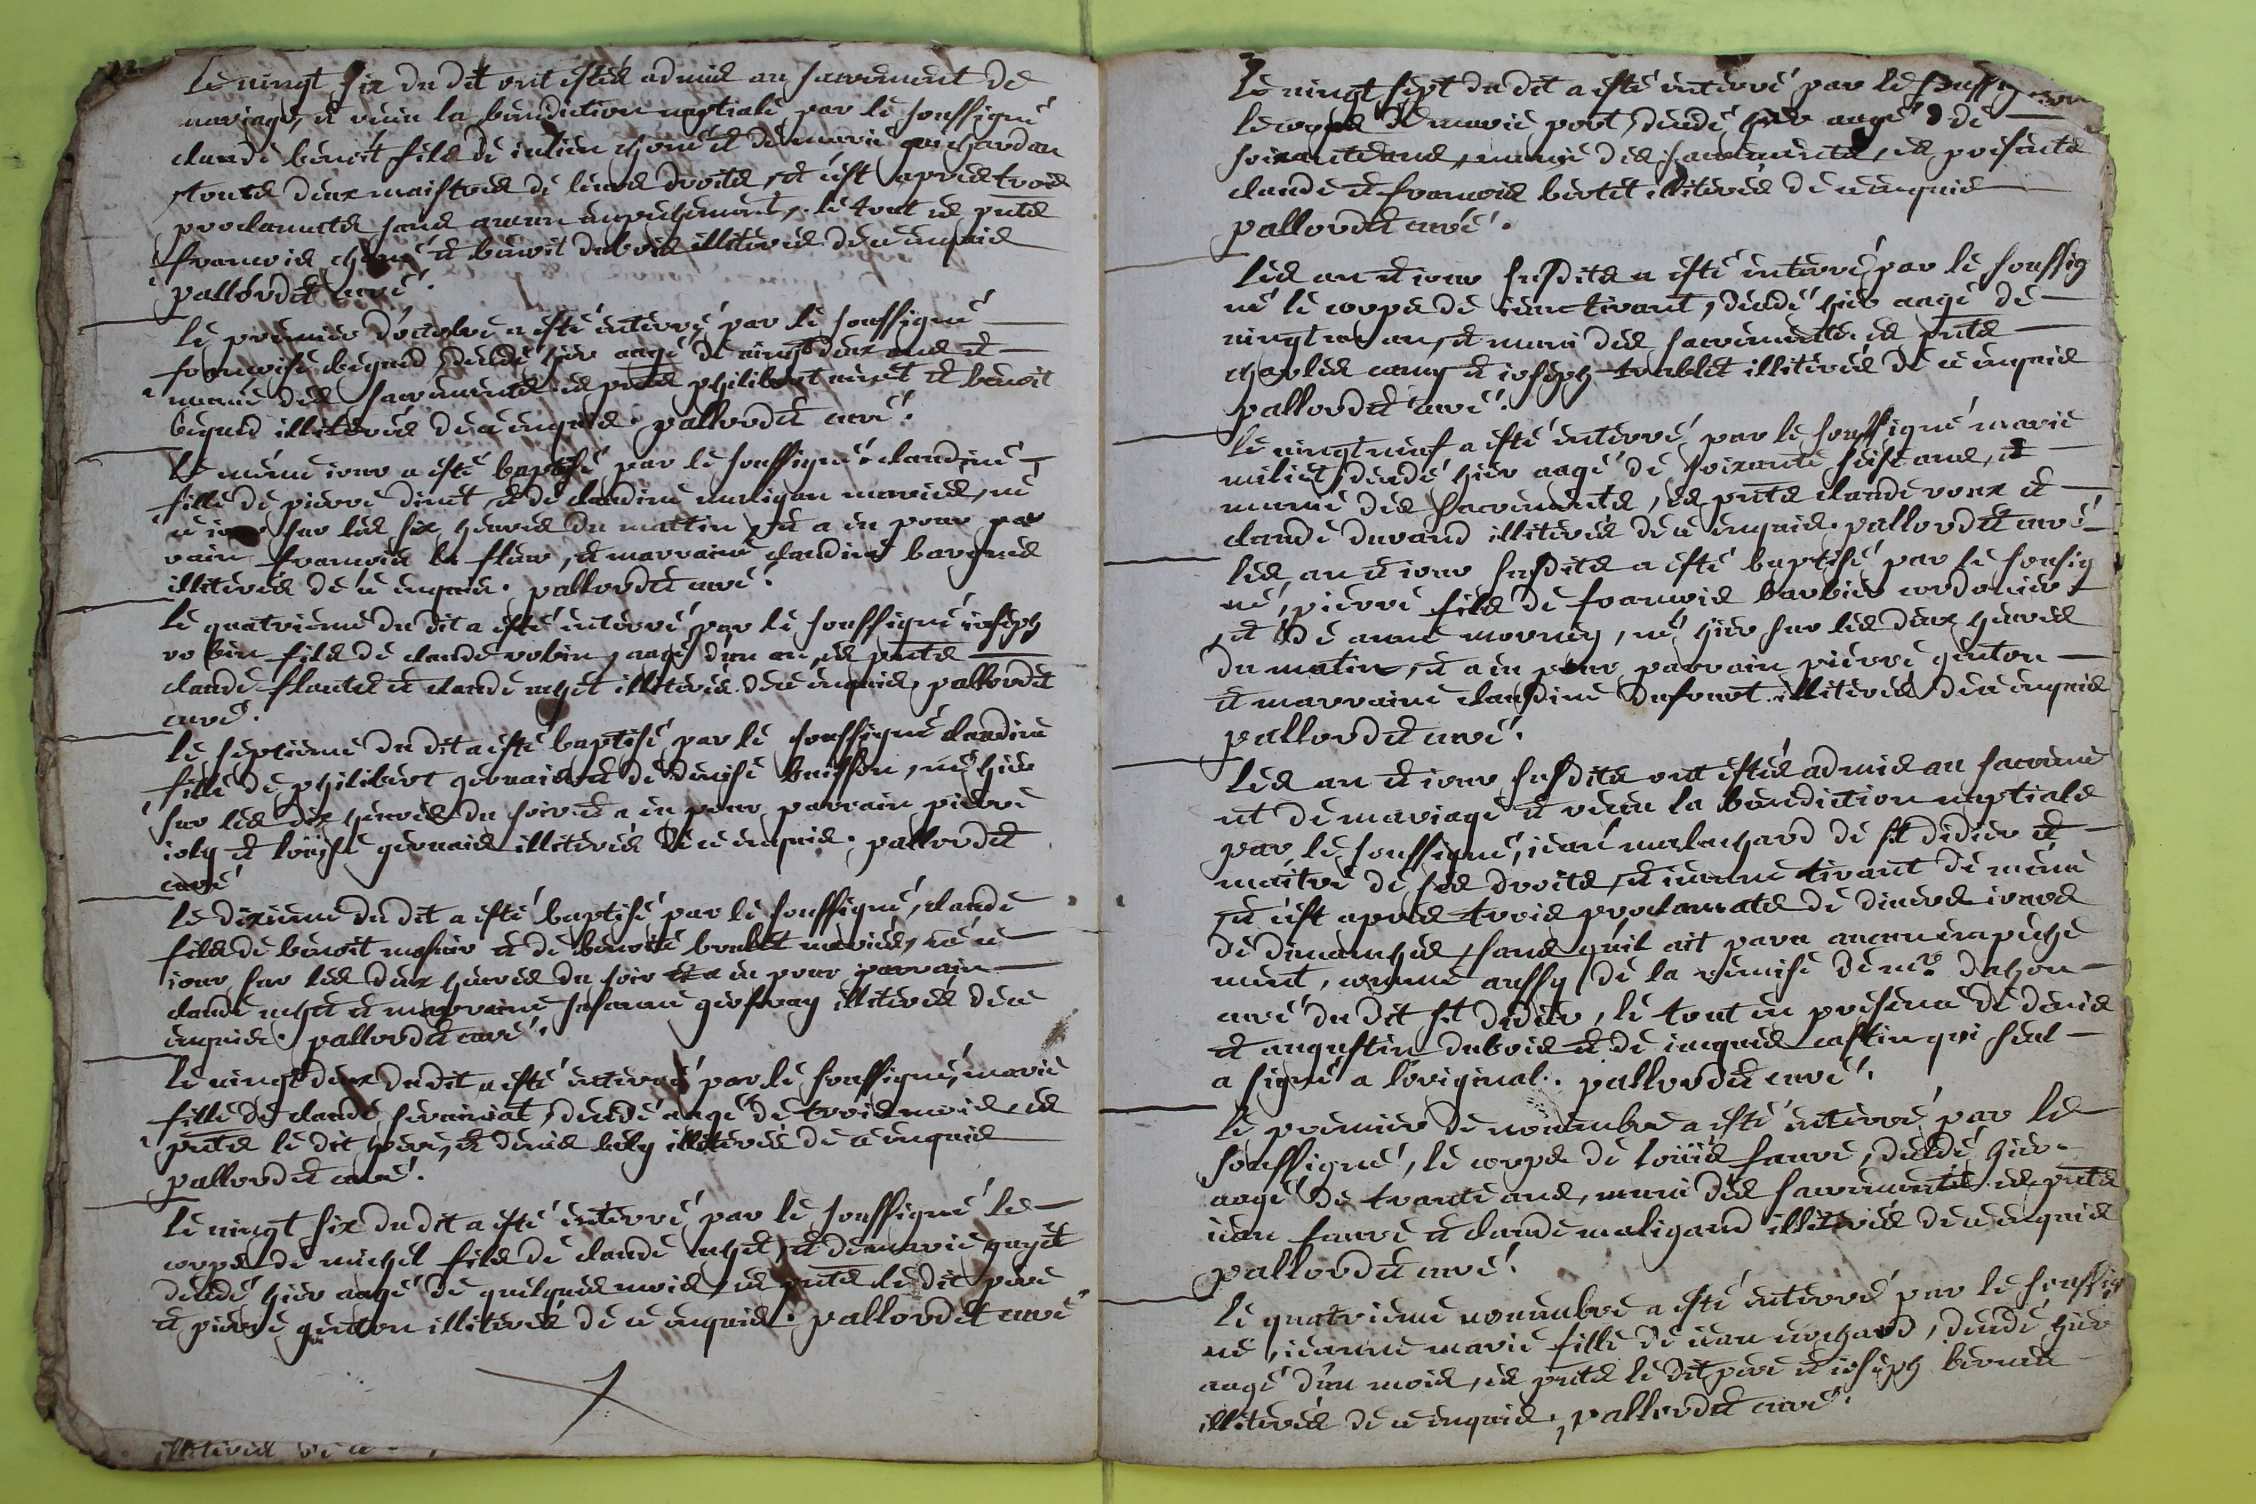 Le vingt six du dit ont estés admis au sacrement de
mariage, et receu la benediction nuptiale par le soussigné
claude benoit fils de julien et de marie
toutes deux maistres de leurs droits, et c'est apres trois
proclamates sans aucun empechement, le tout es pntes
francois et benoit dubois illiterés de ce enquis
pallordet curé.
Le premier d'octobre a esté enterré par le soussigné
francoise begaud, decedé hier aagé de vingt deux ans et
munie des sacrements es pntes philibert et benoit
begaud illiterés de ce enquis. pallordet curé.
Le même jour a esté baptisé par le soussigné claudine
fille de pierre et de claudine maligan mariés, né
ce jour sur les six heures du mattin, et a eu pour par
rain francois la fleur, et marraine claudine
illiterés de ce enquis. pallordet curé.
Le quatrieme du dit a esté enterré par le soussigné joseph
robin fils de claude robin, aagé d'un an, es pntes
claude et claude illiterés de ce enquis, pallordet
curé.
Le septieme du dit a esté baptisé par le soussigné claudine
fille de philibert gervais et de denise buisson, né hier
sur les dix heures du soir et a eu pour parrain pierre
joly et loüise gervais illiterés de ce enquis. pallordet
curé
Le dixieme du dit a esté baptisé par le soussigné, claude
fils de benoit et de benoite mariés, né ce
jour sur les deux heures du soir et a eu pour parrain
claude et marraine susanne geofray illiterés de ce
enquis. pallordet curé.
Le vingt deux du dit a esté enterré par le soussigné, marie
fille de claude decedé aagé de trois mois, es
pntes le dit pere, et denis illiterés de ce enquis
pallordet curé.
Le vingt six du dit a esté enterré par le soussigné le
corps de michel fils de claude et de marie
decedé hier aagé de quelques mois, es pntes le dit pere
et pierre genton illiterés de ce enquis. pallordet curé
illiterés de ce
Le vingt sept du dit a esté enterré par le
le corps de marie port, decedé hier aagé de
soixante ans, munie des sacrements, es presents
claude et francois bertet illiterés de ce enquis
pallordet curé.
Les an et jour susdits a esté enterré par le soussig
né le corps de jean tivant, decedé hier aagé de
vingt un an, et muni des sacrements es pntes
charles et joseph trablet illiterés de ce enquis
pallordet curé.
Le vingt neuf a esté enterré par le soussigné marie
miliet, decedé hier aagé de soixante seise ans, et
munie des sacrements, es pntes claude roux et
claude durand illiterés de ce enquis. pallordet curé
Les an et jour susdits a esté baptisé par le sousig
né, pierre fils de francois barbier cordonier
et de anne mornay, né hier sur les deux heures
du matin, et a eu pour parrain pierre genton
et marraine claudine illiterés de ce enquis
pallordet curé.
Les an et jour susdits ont estés admis au sacreme
nt de mariage et receu la benediction nuptiale
par le soussigné, jean malachard de st didier et
maitre de ses droits, et jeanne tivant de même
et c'est apres trois proclamates de divers jours
de dimanches, sans qu'il ait paru aucun empeche
ment, comme aussy de la remise de mre
curé du dit st didier, le tout en presence de denis
et augustin dubois et de jacques castin qui seul
a signé a l'original. pallordet curé.
Le premier de novembre a esté enterré par le
soussigné, le corps de loüis faure, decedé hier
aagé de trante ans, muni des sacrements es pntes
jean faure et claude maligand illiterés de ce enquis
pallordet curé.
Le quatrieme novembre a esté enterré par le soussig
né, jeanne marie fille de jean decedé hier
aagé d'un mois, es pntes le dit pere et joseph
illiterés de ce enquis, pallordet curé.